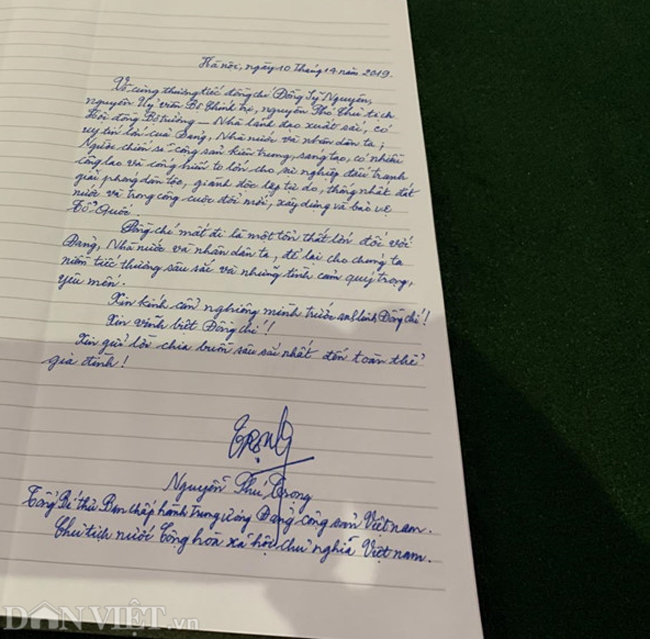 Hà Nội, ngày 10 tháng 4 năm 2019.
Vô cùng thương tiếc đồng chí Đồng Sỹ Nguyên,
nguyên Uỷ viên Bộ Chính trị, nguyên Phó Chủ tịch
Hội đồng Bộ trưởng – Nhà lãnh đạo xuất sắc, có
uy tín lớn của Đảng, Nhà nước và nhân dân ta;
Người chiến sĩ cộng sản kiên trung, sáng tạo, có nhiều
công lao và cống hiến to lớn cho sự nghiệp đấu tranh
giải phóng dân tộc, giành độc lập tự do, thống nhất đất
nước và trong công cuộc đổi mới, xây dựng và bảo vệ
Tổ Quốc.
Đồng chí mất đi là một tổn thất lớn đối với
Đảng, Nhà nước và nhân dân ta, để lại cho chúng ta
niềm tiếc thương sâu sắc và những tình cảm quý trọng,
yêu mến.
Xin kính cẩn nghiêng mình trước anh linh Đồng chí!
Xin vĩnh biệt Đồng chí!
Xin gửi lời chia buồn sâu sắc nhất đến toàn thể
gia đình!
Trọng
Nguyễn Phú Trọng
Tổng Bí thư Ban chấp hành Trung ương Đảng cộng sản Việt Nam.
Chủ tịch nước Cộng hoà xã hội chủ nghĩa Việt Nam.
DÂN VIỆT.vn